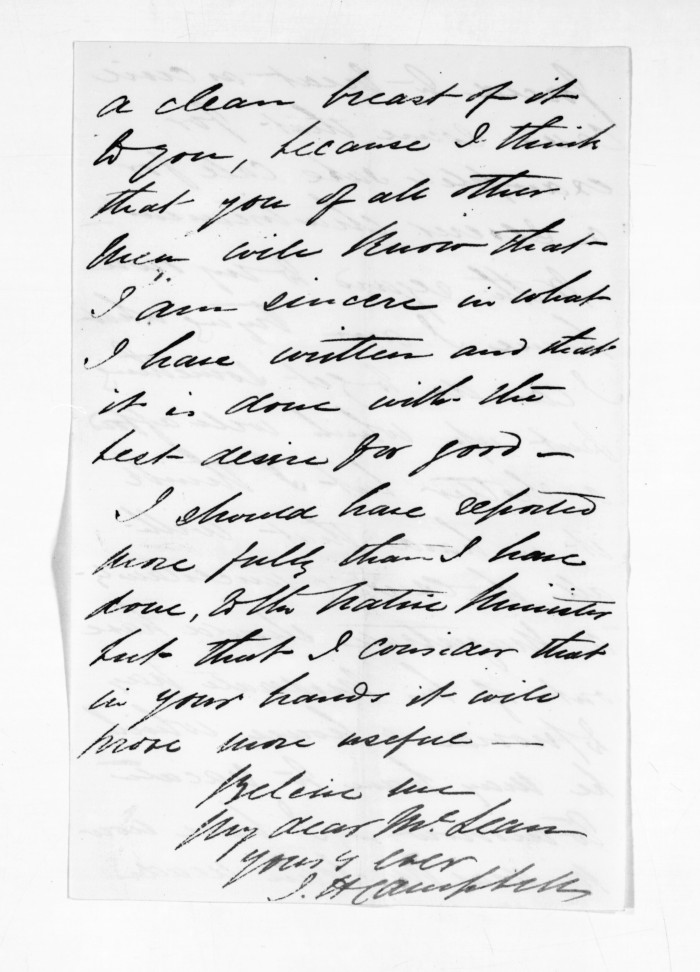 a clean breast of it
to you, because I think
that you of all other
men will know that
I am sincere in what
I have written and that
it is done with the
best desire for good –
I should have reported
more fully than I have
done, to the Native Minister
but that I consider that
in your hands it will
prove more useful —
Believe me
My dear McLean
yours ever
J. H Campbell